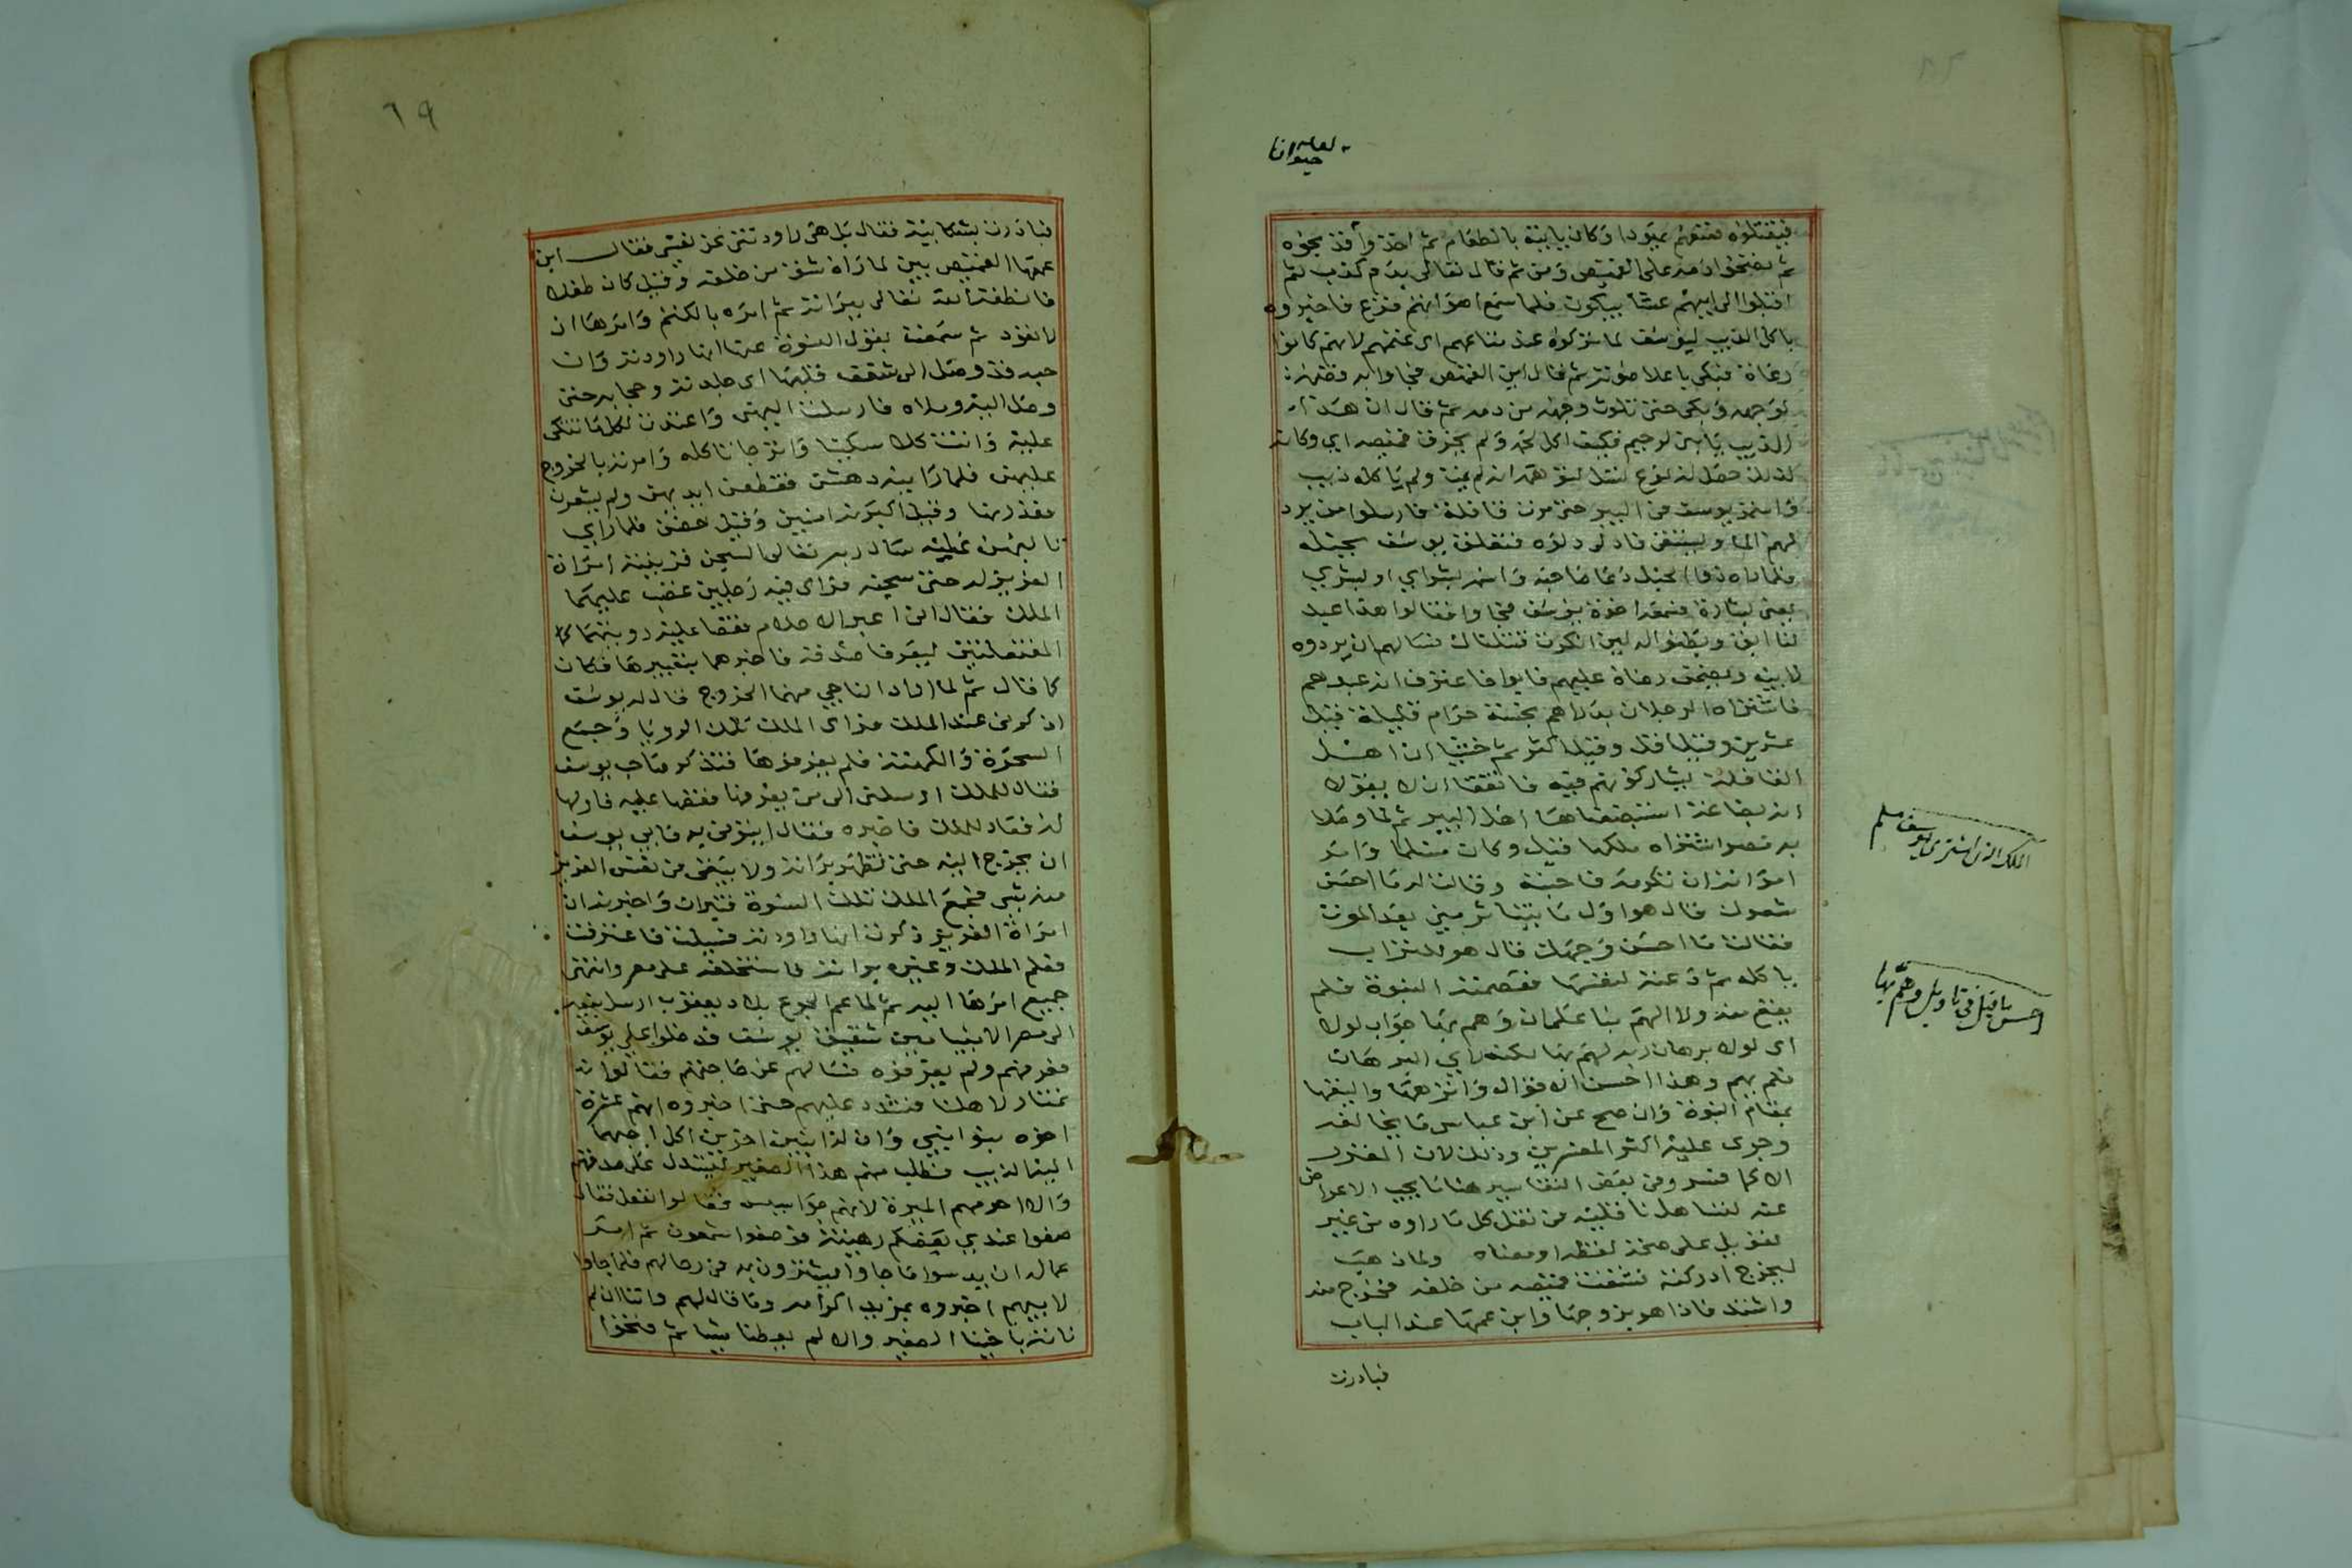 لعله حيوانا
فيقتلوه فمنعهم يهودا وكان ياتيه بالطعام ثم اخذوا قميصه
ثم نضخوا دمه على القميص ومن ثم قال تعالى بدم كذب ثم
اقبلوا الى ابيهم عشا يبكون فلما سمع اهوانهم فزع فاخبروه
باكل الذيب ليوسف لما تركوه عند متاعهم اى غنمهم لانهم كانوا
رعاة فبكى باعلا صوته ثم قال اين القميص فجاوا به
لوجهه وبكى حتى تلوث وجهه من دمه ثم قال ان هذا
الذيب يا بنى لرحيم فكيف اكل لحمه ولم يخرق قميصه اي وكانه
لذلك حصل له نوع تسل لتوهمه انه لم يمت ولم ياكله ذيب
واستمر يوسف فى البير حتى مرت قافلة فارسلوا من يرد
لهم الما ويستقى فادلى دلوه فتعلق يوسف بحبله
فلما راه دعا صاحبه واسمه بشراي او بشرى
بمعنى بشارة فسمعه اخوة يوسف فجاوا فقالوا هذا عبد
لنا ابق وبطنوا له لين انكرت قتلناك فسالهم ان يردوه
لابيه ويضمن رضاه عليهم فابوا فاعترف انه عبدهم
فاشتراه الرجلان بدراهم بخسة حرام قليلة قيل
عشرين وقيل اقل وقيل اكثر ثم خشيا ان اهل
القافلة يشاركونهم فيه فاتفقا ان لا يقولا
انه بضاعة استبضعناها اهل البير ثم لما وصلا
به مصر اشتراه ملكها قيل وكان مسلما وامر
امراته ان تكرمه فاحبته وقالت له ما احسن
شعرك قال هو اول ما يتناثر منى بعد الموت
فقالت ما احسن وجهك قال هو للتراب
ياكله ثم دعته لنفسها فعصمته النبوة فلم
يقع منه ولا الهم بنا على ان وهم بها جواب لولا
اى لولا برهان ربه لهم بها لكنه راي البرهان
فلم يهم وهذا احسن الاقوال وانزهها واليقها
بمقام النبوة وان صح عن ابن عباس ما يخالفه
وجرى عليه اكثر المفسرين وذلك لان
الا كما فسر وفى بعض التفاسير هنا ما يجب الاعراض
عنه لتساهل ناقليه فى نقل كل ما راوه من غير
تعويل على صحة لفظه او معناه ولما ذهب
ليخرج ادركته فشقت قميصه من خلفه فخرج منه
واشتد فاذا هو بزوجها وابن عمها عند الباب
فبادرت
الملك الذى اشترى يوسف مسلم
احسن ما قيل فى تاويل وهم بها
٦٩
فبادرت بشكايته فقال بل هى راودتنى عن نفسى فقال ابن
عمها القميص يبين لما راه شق من خلفه وقيل كان طفلا
فانطقه الله تعالى ببراته ثم امره بالكتم وامرها ان
لا تعود ثم سمعت بقول النسوة عنها انها راودته وان
حبه قد وصل الى شغف قلبها اى جلدته وحجابه حتى
وصل اليه وملاه فارسلت اليهن واعتدت لكل ما تتكى
عليه واتت كلا سكينا واترجا تاكله وامرته بالخروج
عليهن فلما راينه دهشن فقطعن ايديهن ولم يشعرن
فعذرنها وقيل اكبرنه امنين وقيل حضن فلما راى
تالبهن عليه سال ربه تعالى السجن فزينته امراة
العزيز له حتى سجنه فراى فيه رجلين غضب عليهما
الملك فقال انى اعبر الاحلام فقصا عليه روينهما
المفتعلتين ليعرفا صدقه فاخبرهما بتعبيرها فكان
كما قال ثم لما اراد الناجي منهما الخروج قال له يوسف
اذكرنى عند الملك فراى الملك تلك الرويا وجمع
السحرة والكهنة فلم يعرفوها فتذكر صاحب يوسف
فقال للملك ارسلنى الى من يعرفها فقصها عليه فاولها
له فعاد للملك فاخبره فقال ايتونى به فابى يوسف
ان يخرج اليه حتى تظهر براته ولا يبقى فى نفس العزيز
منه شى فجمع الملك تلك النسوة فتبرات واخبرنه ان
امراة العزيز ذكرت انها راودته فسيلت فاعترفت
فعلم الملك وغيره براته فاستخلفه على مصر وانتهى
جميع امرها اليه ثم لما عم الجوع بلاد يعقوب ارسل بنيه
الى مصر الا بنيامين شقيق يوسف فدخلوا على يوسف
فعرفهم ولم يعرفوه فسالهم عن حاجتهم فقالوا
نمتار لاهلنا فشدد عليهم حتى اخبروه انهم عشرة
اخوه بنوا نبي وان له ابنين اخرين اكل احبهما
اليه الذيب فطلب منهم هذا الصغير ليستدل على صدقهم
والا احرمهم الميرة لانهم جواسيس فقالوا نفعل فقال
ضعوا عندي بعضكم رهينة فوضعوا شمعون ثم امر
عماله ان يدسوا ما جاوا يشترون به فى رحالهم فلما جاوا
لابيهم اخبروه بمزيد اكرامه وما قال لهم واننا ان لم
ناته باخينا الصغير والا لم يعطنا شيا ثم فتحوا